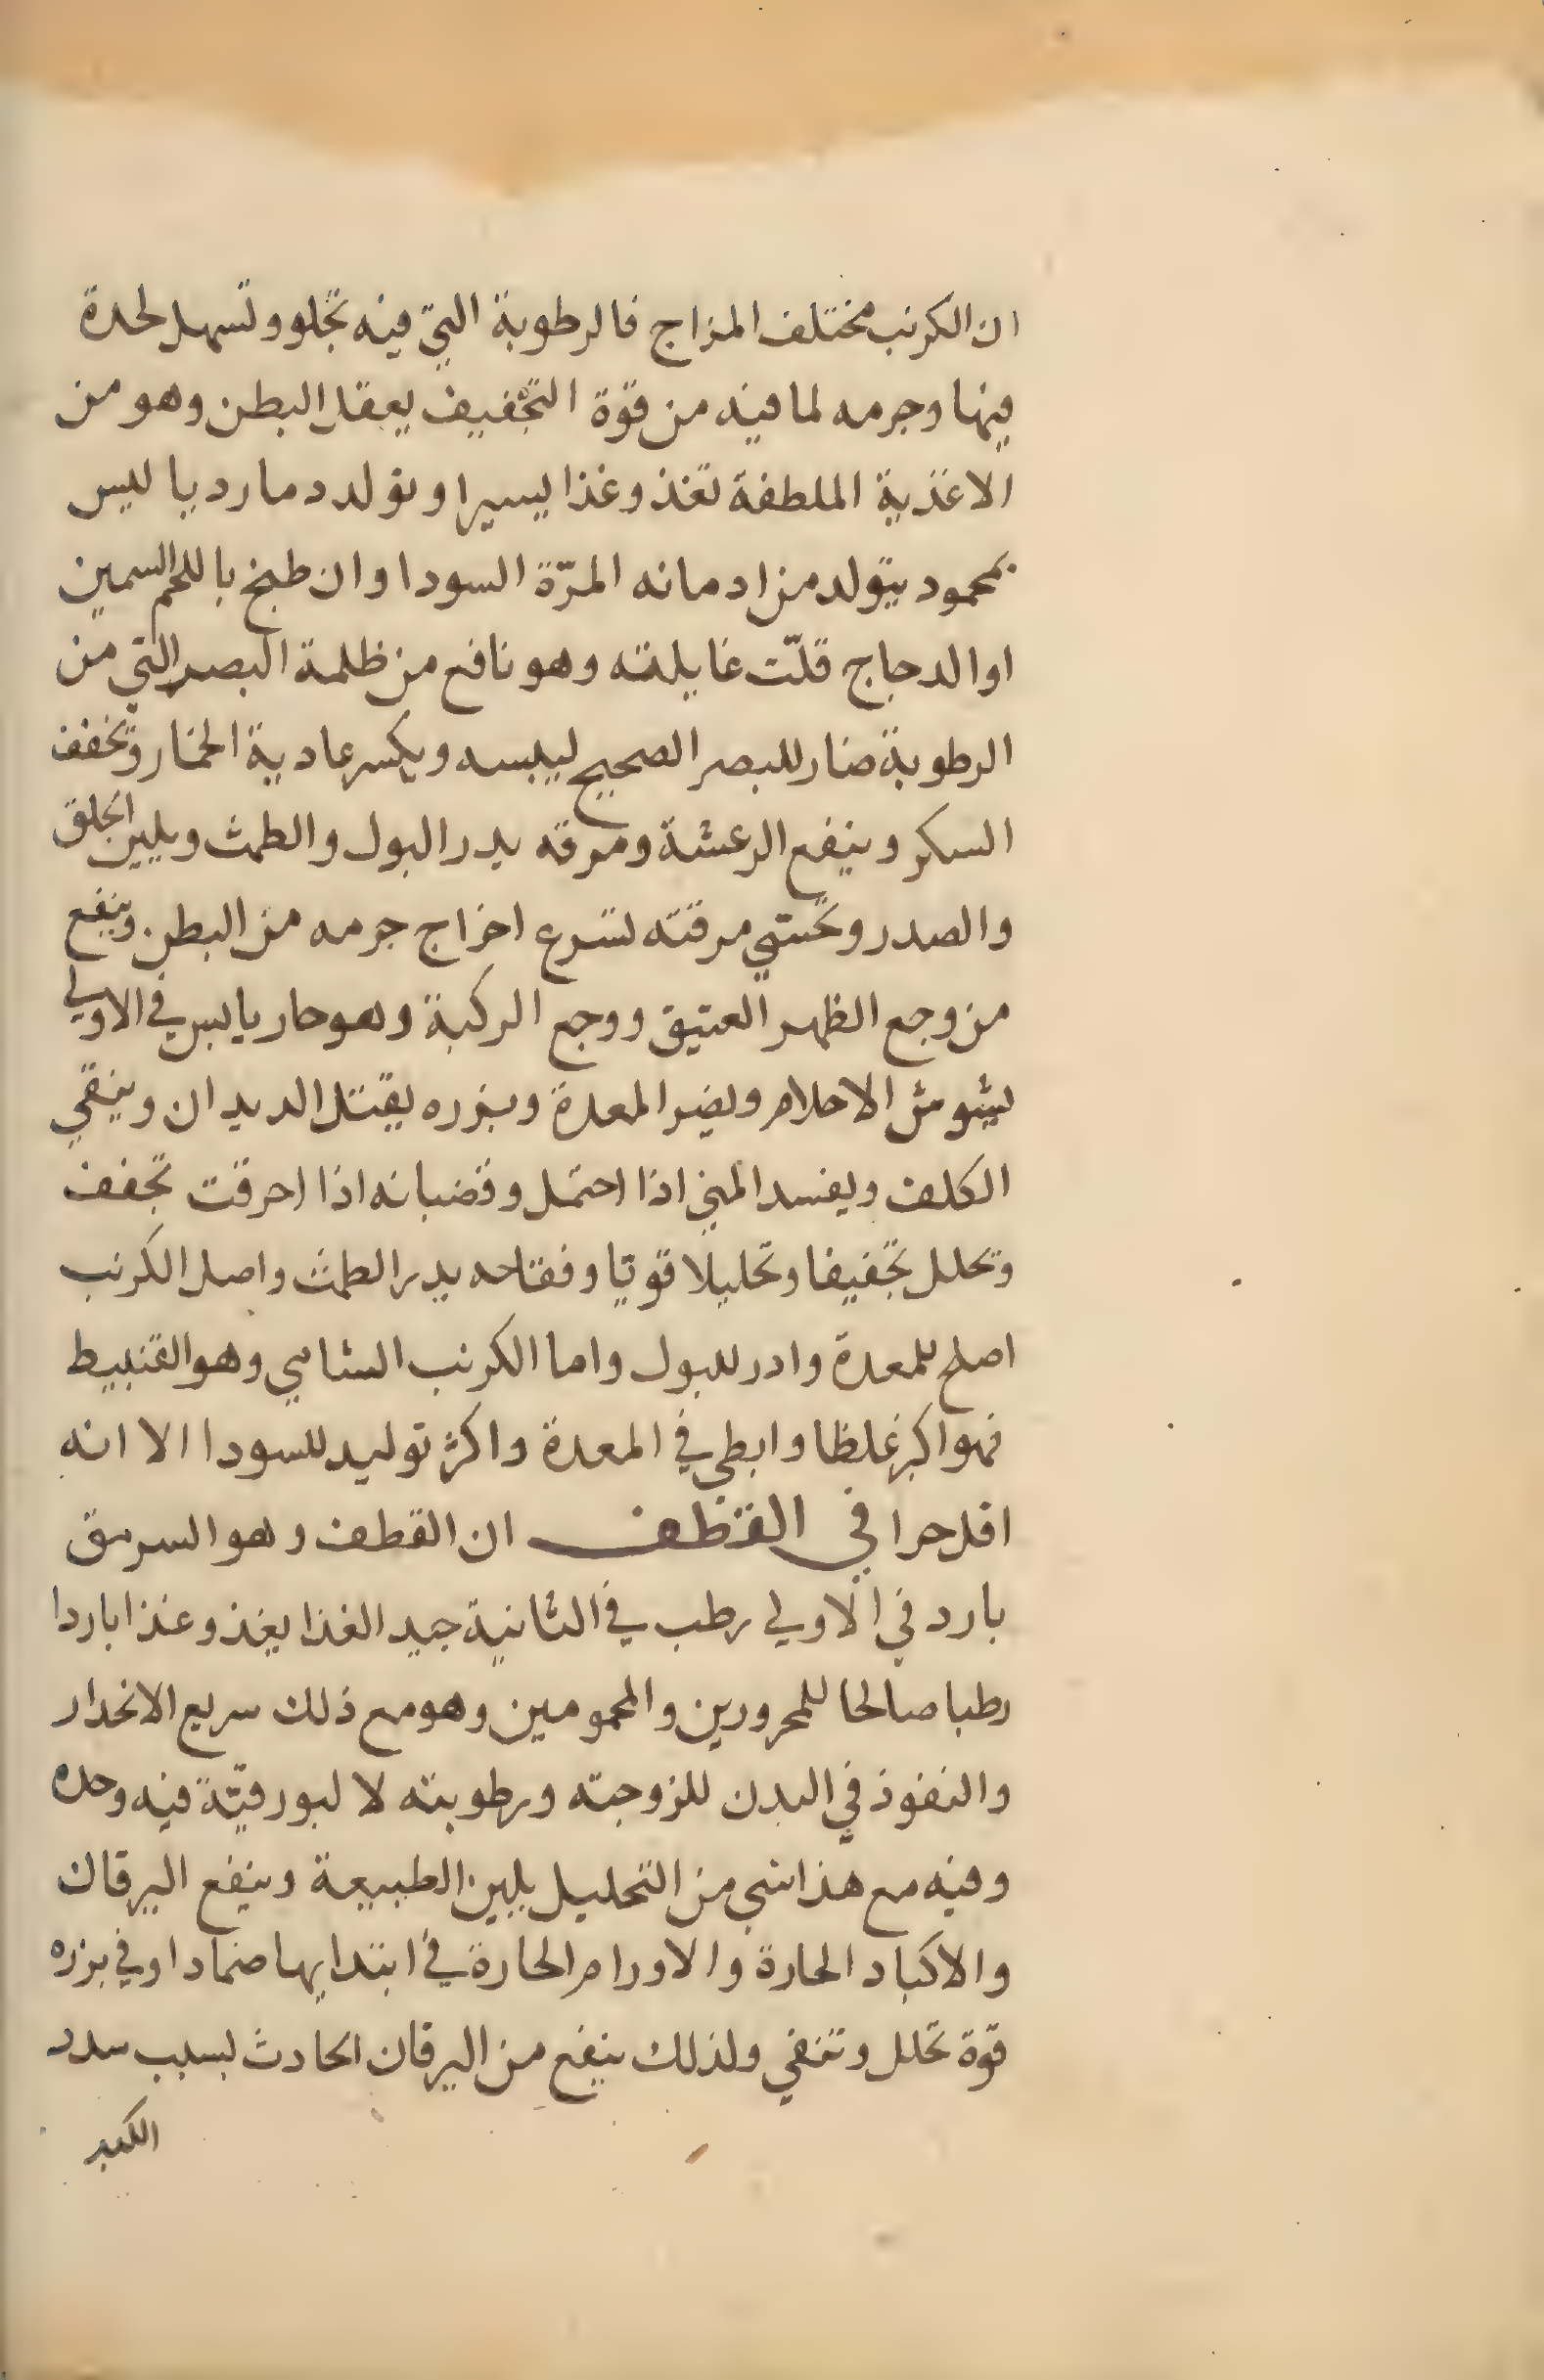 ان الكرنب مختلف المزاج فالرطوبة التي فيه تجلو وتسهل لحدة
فيها وجرمه لما فيه من قوة التجفيف يعقل البطن وهو من
الاغذية الملطفة تغذو غذا يسيرا وتولد دما رديا ليس
بمحمود يتولد من ادمانه المرّة السودا وان طبخ باللحم السمين
او الدجاج قلّت غايلته وهو نافع من ظلمة البصر التي من
الرطوبة ضار للبصر الصحيح ليبسه ويكسر عادية الخمار وتخفف
السكر وينفع الرعشة ومرقه يدر البول والطمث ويلين الحلق
والصدر وتحسّي مرقته تسرع اخراج جرمه من البطن. وينفع
من وجع الظهر العتيق ووجع الركبة وهو حار يابس في الاولي
يشوش الاحلام ويضر المعدة وبزره يقتل الديدان وينقي
الكلف ويفسد المني اذا احتمل وقضبانه اذا احرقت تجفف
وتحلل تجفيفا وتحليلا قويا وفقاحه يدر الطمث واصل الكرنب
اصلح للمعدة وادر للبول واما الكرنب الشامي وهو القنبيط
فهو اكبر غلظا وابطي في المعدة واكثر توليد للسودا الا انه
اقل حرا في القطف ان القطف وهو السرمق
بارد في الاولي رطب في الثانية جيد الغذا يغذو غذا باردا
رطبا صالحا للمحرورين والمحمومين وهو مع ذلك سريع الانحدار
والنفوذ في البدن للزوجته ورطوبته لا لبورقيّة فيه وحده
وفيه مع هذا شي من التحليل يلين الطبيعة وينفع اليرقان
والاكباد الحارة والاورام الحارة في ابتدايها ضمادا وفي بزره
قوة تحلل وتنقي ولذلك ينفع من اليرقان الحادث بسبب سدد
الكبد